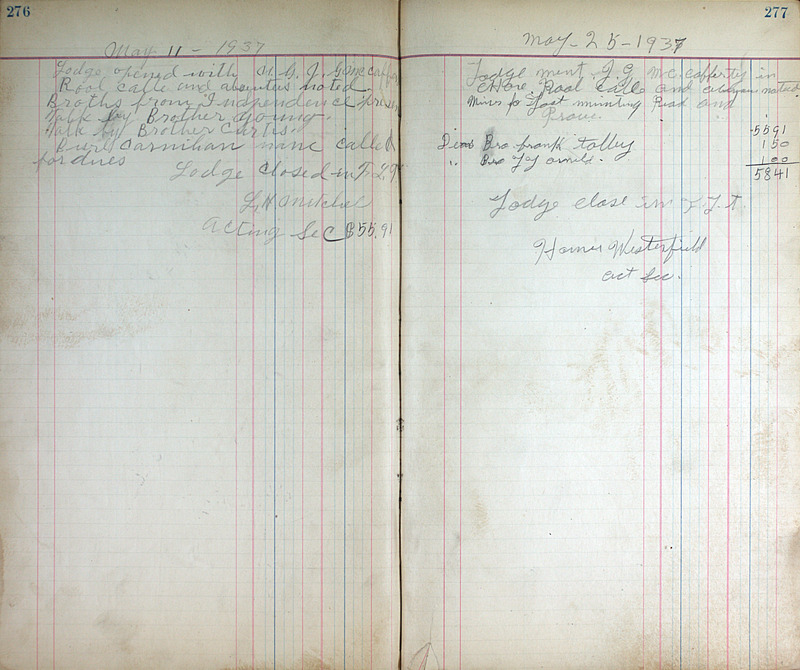 276
May 11 - 1937
Lodge opened with N. G. J. G. Mccaffer
Rool calle and absentes noted.
Broths from Independence presen
Talk by Brother Young.
Talk by Brother Curtis.
name called
for dues
Lodge Closed in F. L. T
L. H. Mitchel
Acting Sec $55.91
277
May - 25 - 1937
Lodge ment J. G Mc cafferty in
Chare Rool Calle and noted
Mines for Last meeting Read and
Prove.
5591
Dews Bro frank tolley 150
" Bro 100
5841
Lodge close in F. L. T.
Homer Westerfield
act Sec.